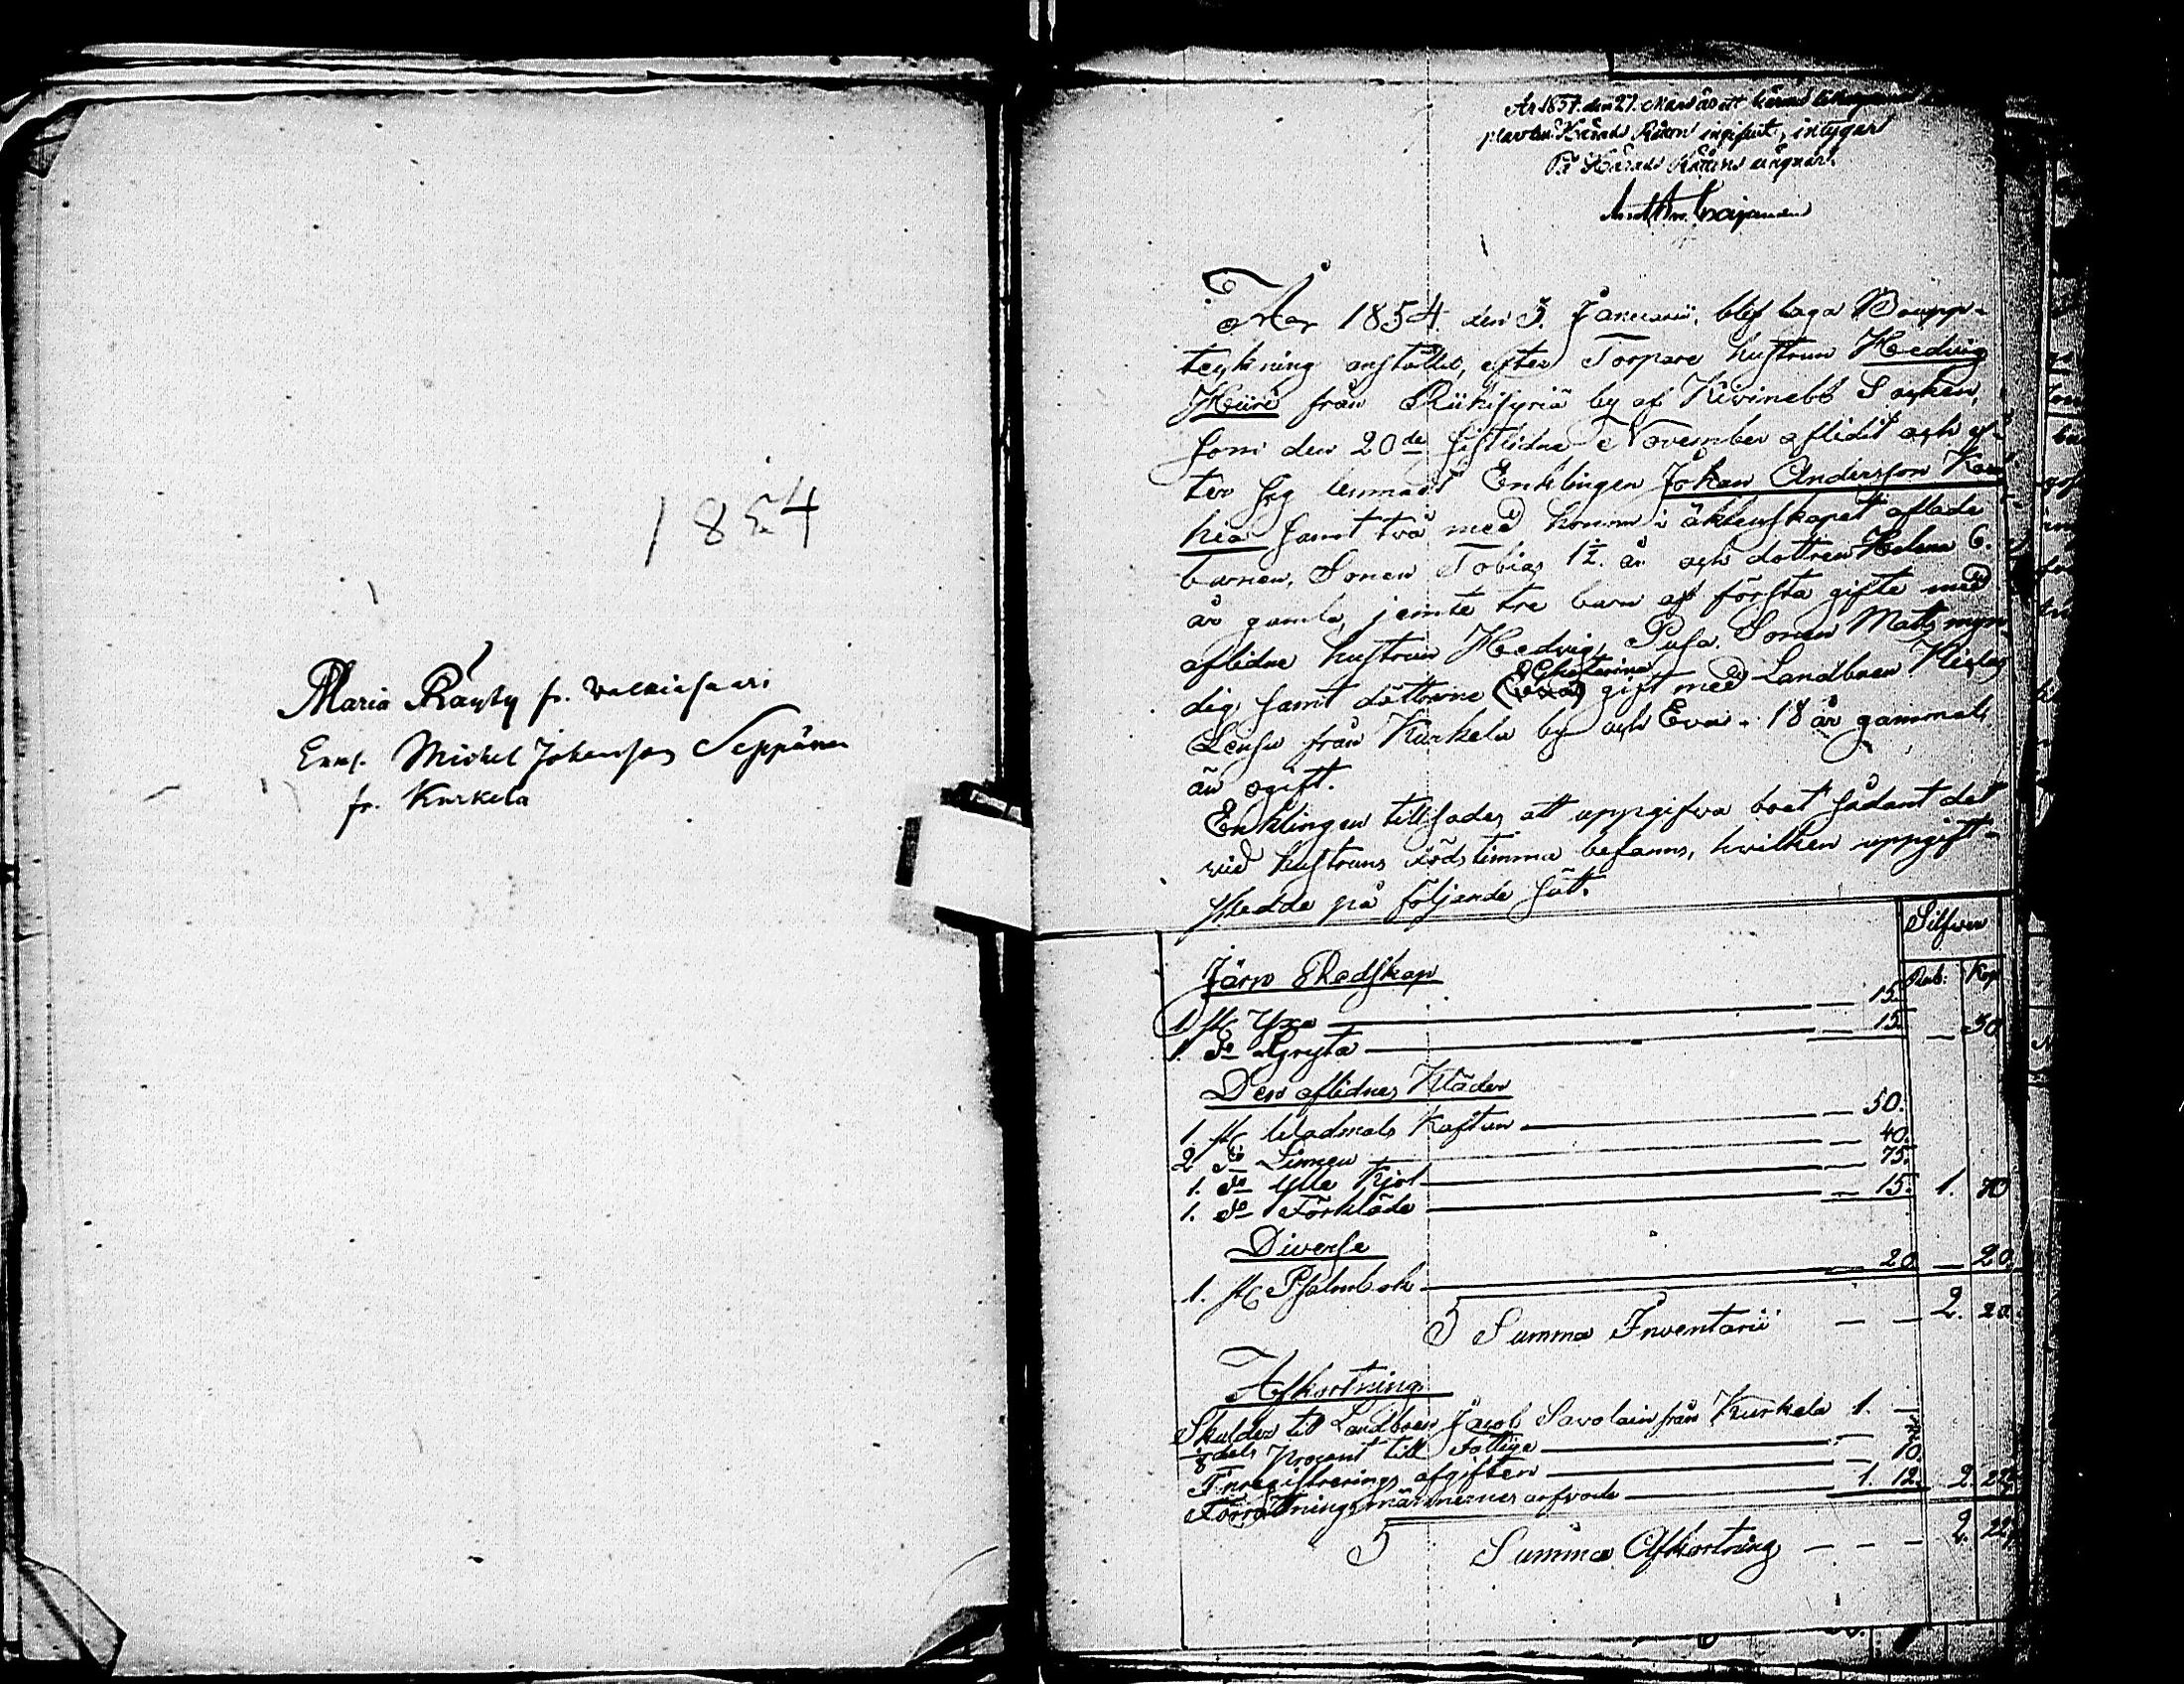 1854
Maria Räyty fr. Valkiasaari
Enkl. Michel Johansson Seppänen
fr. Kurkela
År 1857. den 27. Mars
Härads Rätten ingifvit, intygar
På Härads Rättens vägnar:
År 1854 den 3. Januarii, blef laga Boupp-
teckning anstäld, efter Torpare hustrun Hedvig
Hiiri från Riihisyriä by af Kivinebb Socken,
som den 20de sistlidne November aflidit och ef-
ter sig lemnadt Enklingen Johan Andersson Kar-
hia samt två med honom i äktenskapet aflade
barnen, Sonen Tobias 1½ år och dottren Helena 6.
år gamla, jemte tre barn af första gifte med
aflidne hustrun Hedvig Pusa. Sonen Matts myn-
dig, samt döttrarne Chatarina gift med Landboen
från Kurkela by och Eva - 18 år gammal,
än ogift.
Enklingen tillsades att uppgifva boet sådant det
vid hustruns dödstimma befanns, hvilken uppgift
skedde på följande sätt.
Silfver
Rub. Kop
Järn Redskap
1 st Yxa — 15.
1. do Gryta — 15. — 30
Den aflidnes Kläder
1. st Wadmals Kaftan — 50.
2 do Linnen — 40.
1. do Ylle Kjol — 75.
1. do Förkläde — 15. 1. 70
Diverse
1. st Psalmbok — 20 — 20.
S Summa Inventarii — — 2. 20.
Afkortning
Skulder till Landboen Jacob Savolain från Kurkela 1. —
1/8 dels Procent till Fattige —
Inregistrerings afgiften — 10.
Förrättningsmännernes arfvode — 1. 12. 2. 22
S Summa Afkortning — — — 2. 22